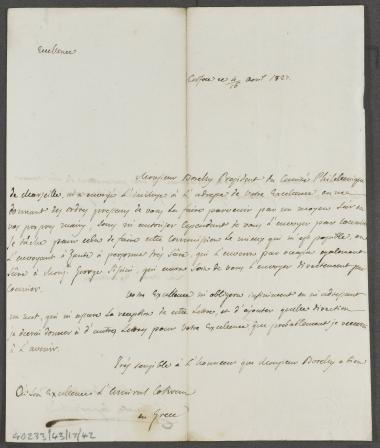 Excellence
Corfou ce 4/16 avril 1827.
Monsieur Borély Président du Comité Philhellénique
de Marseille, m'a envoyé l'incluse à l'adresse de Votre Excellence, en me
donnant des ordres de vous la faire parvenir par un moyen sûr
vos propres mains, sans m'autoriser cependant de vous l'envoyer par
Je tache pour cela de faire cette commission le mieux qui m'est possible, en
l'envoyant à Zante à personne très sûre, qui l'enverra par occasion également
sûre à Mons. George qui aura soin de vous l'envoyer directement par
courrier.
Votre Excellence m'obligera infiniment en m'adressant
un mot, qui m'assure la réception de cette Lettre, et d'ajouter quelle direction
je devrai donner à d'autres Lettres pour Votre Excellence que probablement je recevrai
à l'avenir.
Très sensible à l'honneur que Monsieur Borély a bien
A Son Excellence l'Amiral Cokrane
en Grece
40233/43/17/42